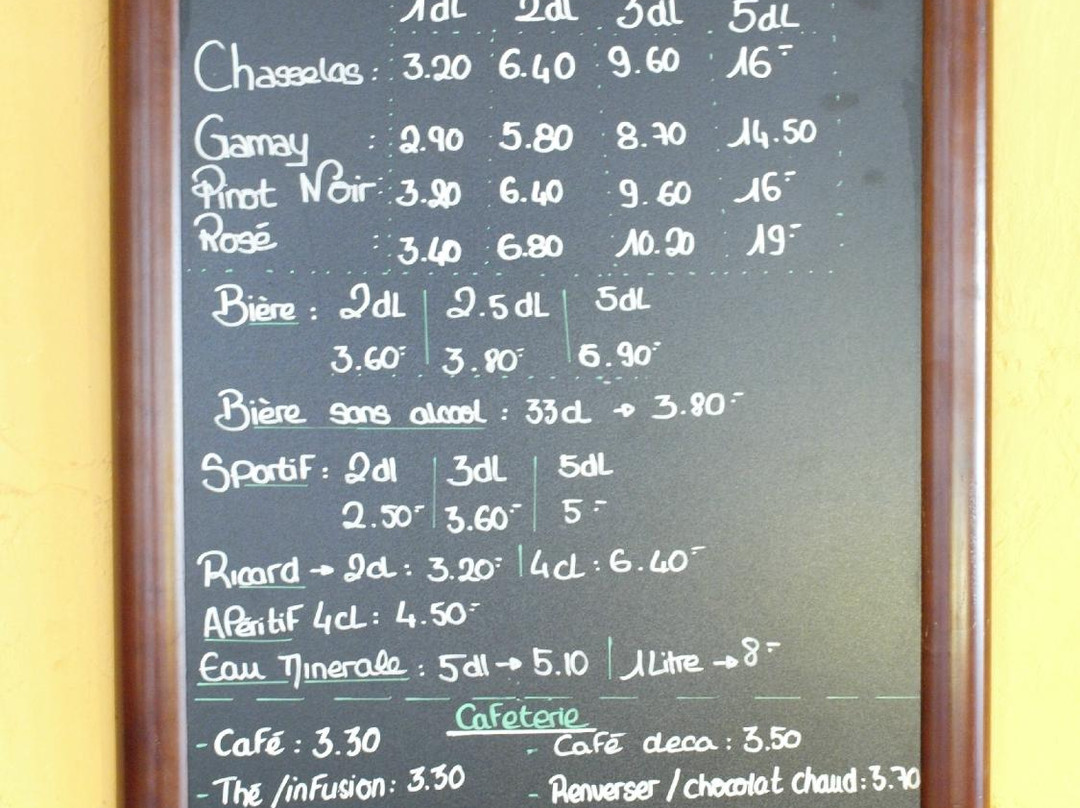 1dl 2dl 3dl 5dL
Chasselas : 3.20 6.40 9.60 16-
Gamay : 2.90 5.80 8.70 14.50
Pinot Noir : 3.20 6.40 9.60 16-
Rosé : 3.40 6.80 10.20 19-
Bière : 2dL | 2.5dL | 5dL
3.60- | 3.80- | 6.90-
Bière sans alcool : 33cl → 3.80-
Sportif : 2dl | 3dL | 5dL
2.50- | 3.60- | 5-
Ricard → 2cl : 3.20- | 4cL : 6.40-
Apéritif 4cL : 4.50-
Eau Minerale : 5dl → 5.10 | 1Litre → 8-
Cafeterie
- Café : 3.30 - Café deca : 3.50
- Thé /infusion : 3.30 - Renverser / chocolat chaud : 3.70